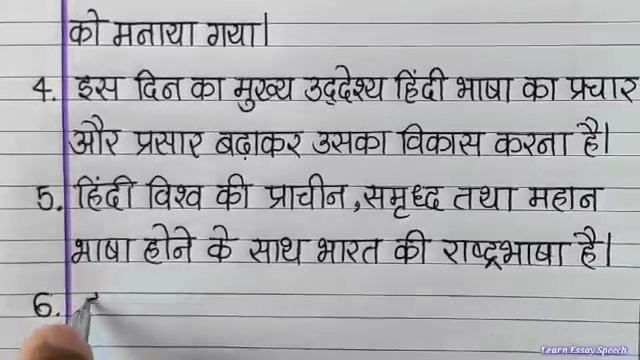 को मनाया गया।
4. इस दिन का मुख्य उद्देश्य हिंदी भाषा का प्रचार
और प्रसार बढ़ाकर उसका विकास करना है।
5. हिंदी विश्व की प्राचीन, समृध्द तथा महान
भाषा होने के साथ भारत की राष्ट्रभाषा है।
6.
Learn Essay Speech